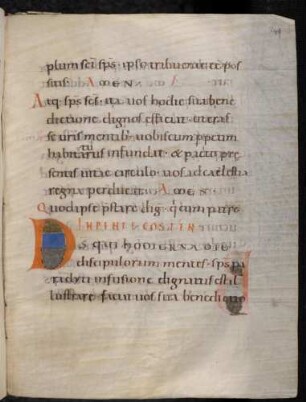 plum sci sps ipso tribuente et pos
sitis. AMEN.
Atq sps scs ita uos hodie sua bene
dictione dignos efficiat. ut en
se uris mentib; uobiscum ppetim
habitaturus infundat. & pacto pre
sentis uitae circulo. uos ad caelestia
regna perducat. AMEN
Quod ipse pstare dig q cum patre
IN PENTECOSTEN
DS qui HODIERNA DIE
discipulorum mentes sps pa
racliti infusione dignatus est il
lustrare. faciat uos sua benedictio